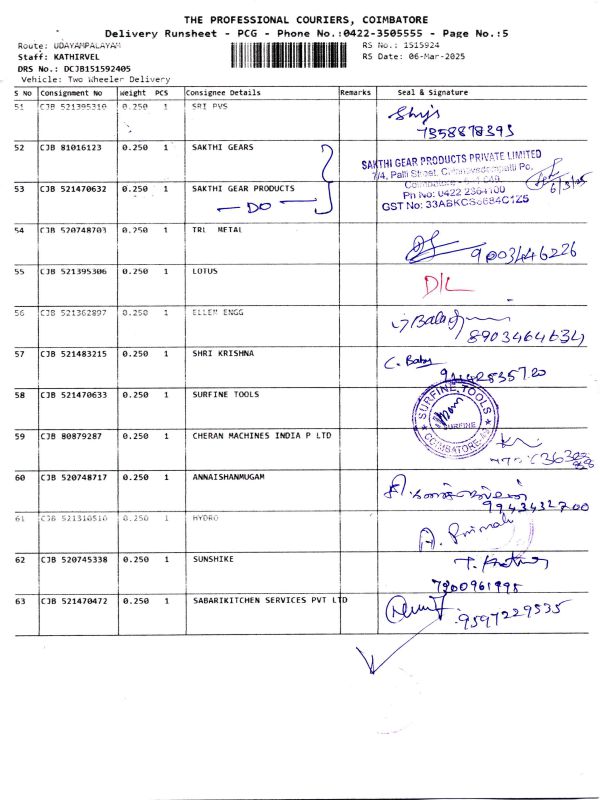 THE PROFESSIONAL COURIERS, COIMBATORE
Delivery Runsheet - PCG - Phone No.:0422-3505555 - Page No.:5
Route: UDAYAMPALAYAM
RS No.: 1515924
Staff: KATHIRVEL
RS Date: 06-Mar-2025
DRS No.: DCJB151592405
Vehicle: Two Wheeler Delivery
S No Consignment No Weight PCS Consignee Details Remarks Seal & Signature
51 CJB 521395310 0.250 1 SRI PVS
7358878393
52 CJB 81016123 0.250 1 SAKTHI GEARS
SAKTHI GEAR PRODUCTS PRIVATE LIMITED
53 CJB 521470632 0.250 1 SAKTHI GEAR PRODUCTS
- DO -
Ph No: 0422 2364100
6/3/25
54 CJB 520748703 0.250 1 TRL METAL
9003446226
55 CJB 521395306 0.250 1 LOTUS
D/L
56 CJB 521362897 0.250 1 ELLEN ENGG
8903464634
57 CJB 521483215 0.250 1 SHRI KRISHNA
C. Babu
58 CJB 521470633 0.250 1 SURFINE TOOLS
SURFINE TOOLS
SURFINE
COIMBATORE
59 CJB 80879287 0.250 1 CHERAN MACHINES INDIA P LTD
60 CJB 520748717 0.250 1 ANNAISHANMUGAM
9943432700
61 CJB 521310510 0.250 1 HYDRO
62 CJB 520745338 0.250 1 SUNSHIKE
7200961995
63 CJB 521470472 0.250 1 SABARIKITCHEN SERVICES PVT LTD
9597229535